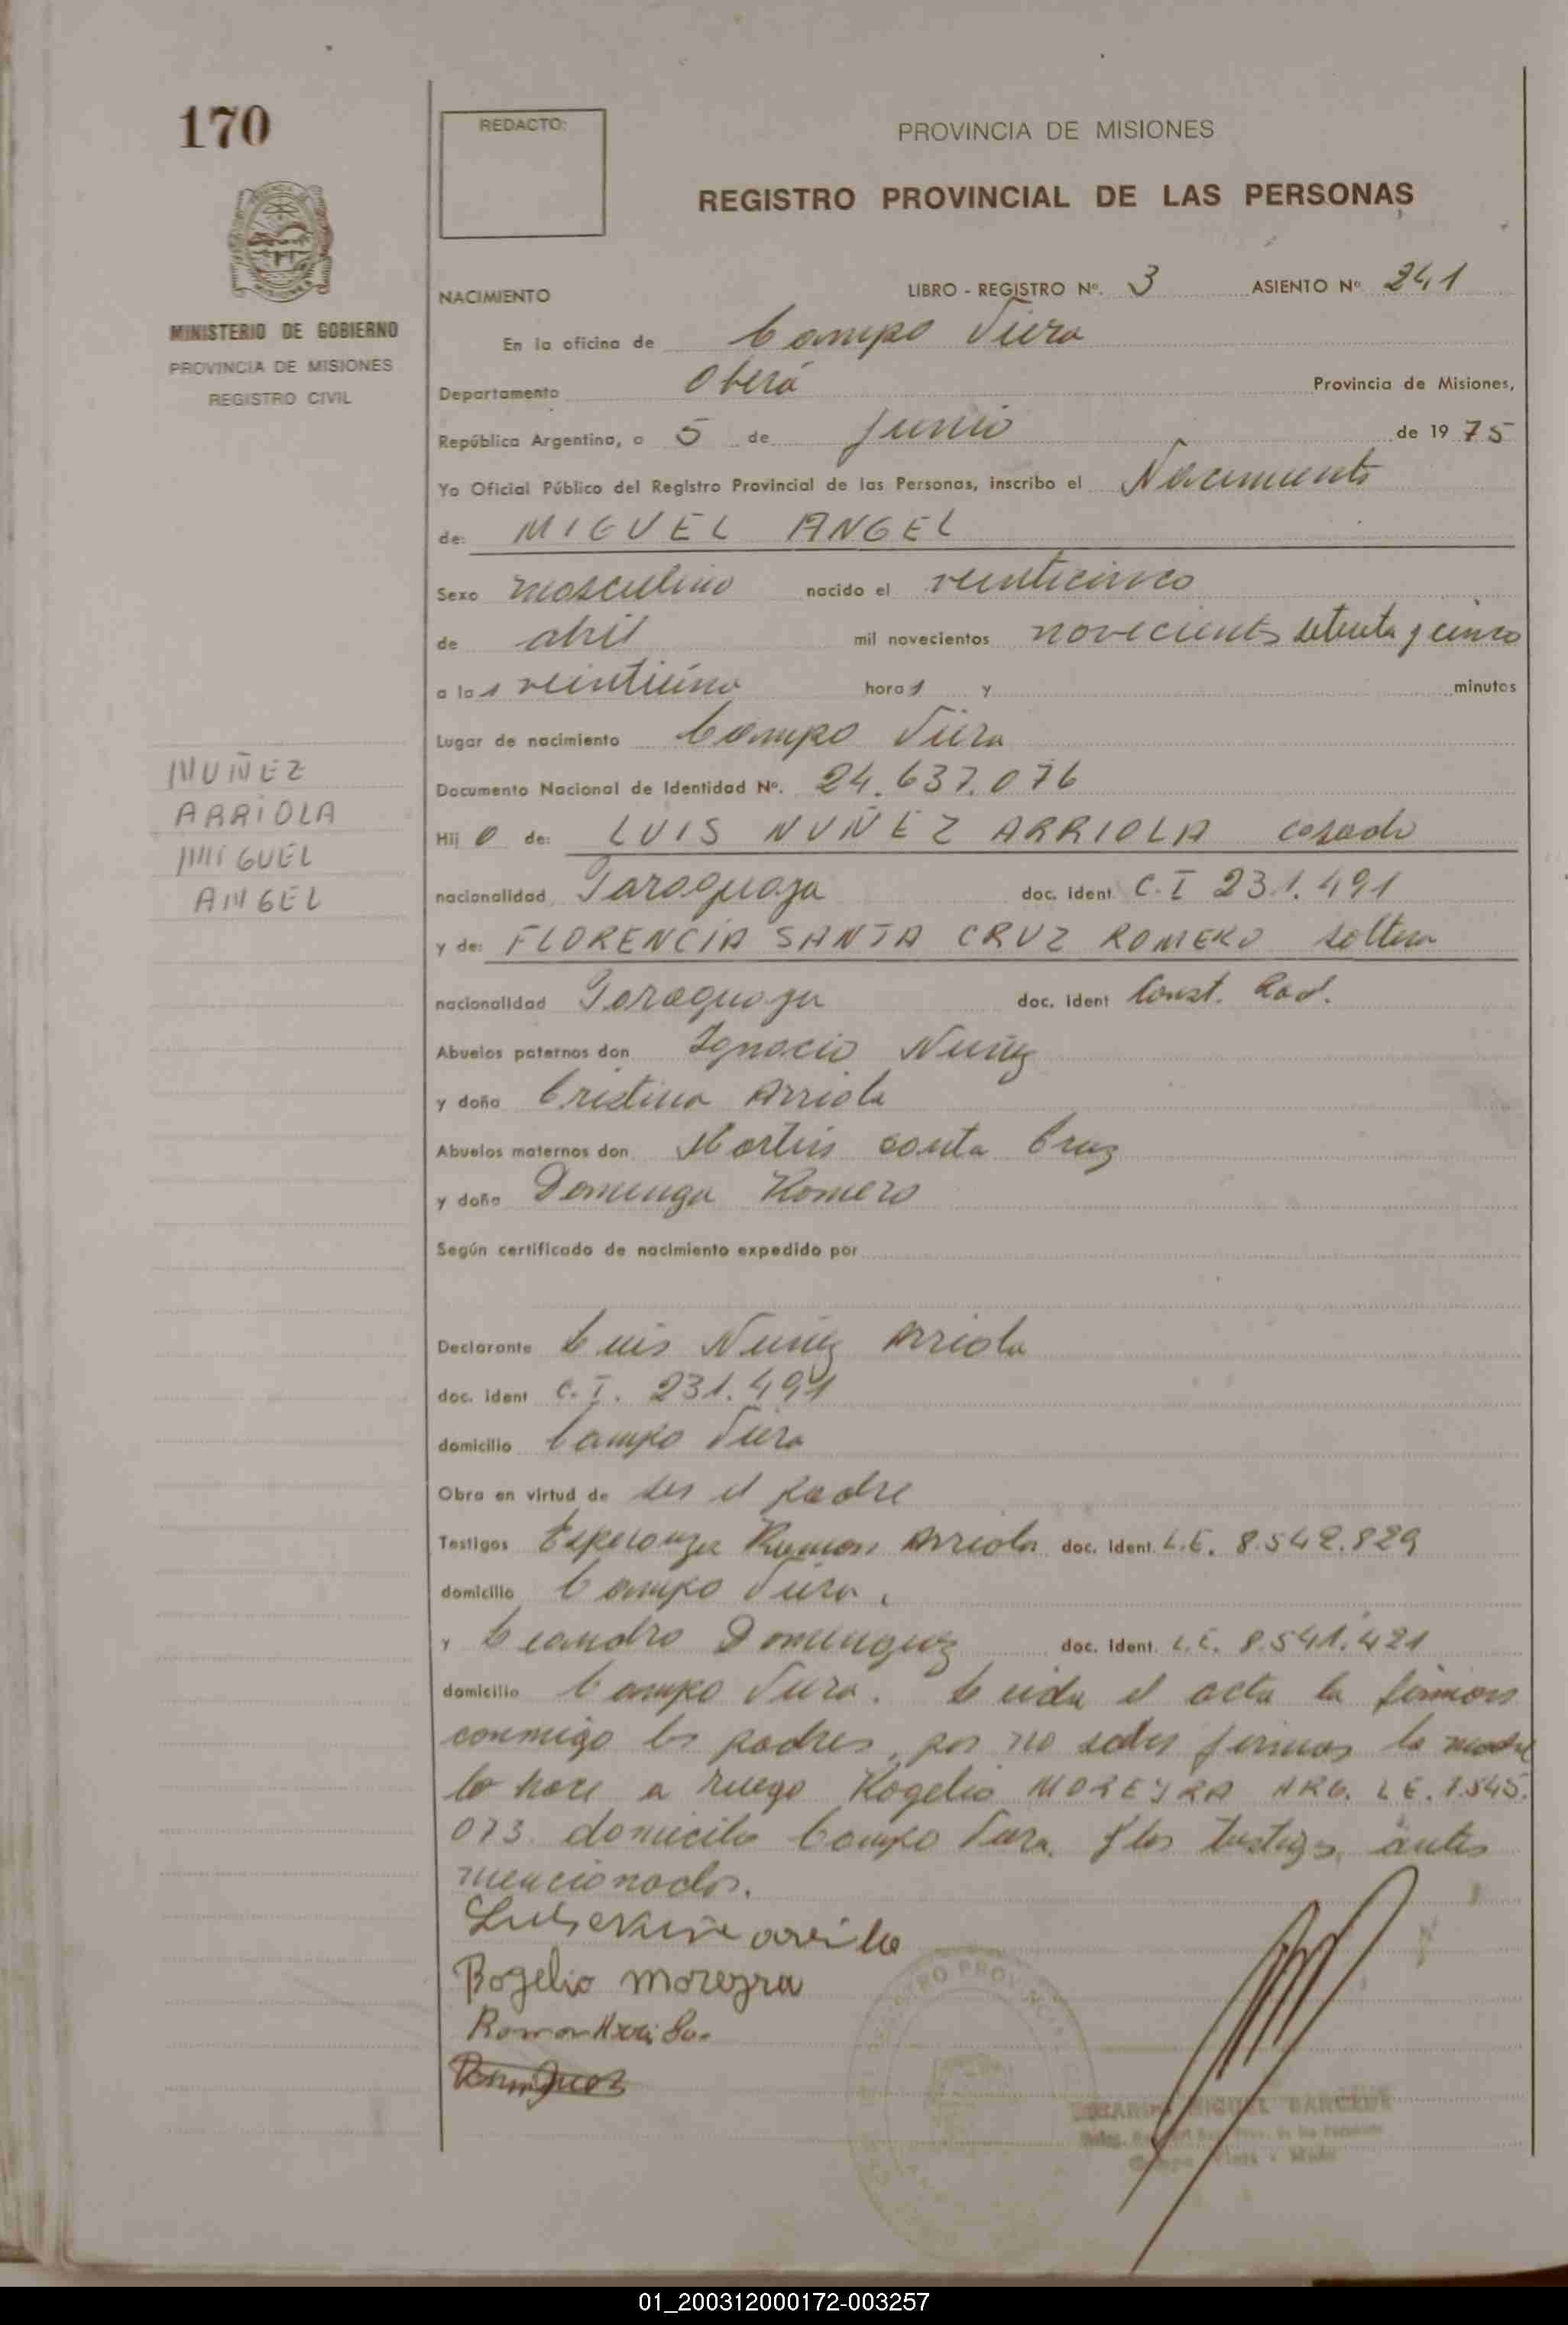 170
REDACTO:
PROVINCIA DE MISIONES
REGISTRO PROVINCIAL DE LAS PERSONAS
MINISTERIO DE GOBIERNO
PROVINCIA DE MISIONES
REGISTRO CIVIL
NACIMIENTO LIBRO - REGISTRO Nº. 3 ASIENTO Nº 241
En la oficina de Campo Viera
Departamento Oberá Provincia de Misiones,
República Argentina, a 5 de Junio de 1975
Yo Oficial Público del Registro Provincial de las Personas, inscribo el Nacimiento
de: MIGUEL ANGEL
Sexo masculino nacido el veinticinco
de abril mil novecientos novecientos setenta y cinco
a las veintiuna horas y minutos
Lugar de nacimiento Campo Viera
Documento Nacional de Identidad Nº. 24.637.076
NUÑEZ
ARRIOLA
MIGUEL
ANGEL
Hijo de: LUIS NUÑEZ ARRIOLA casado
nacionalidad Paraguaya doc. ident C.I 231.491
y de: FLORENCIA SANTA CRUZ ROMERO soltera
nacionalidad Paraguaya doc. ident Const. Rad.
Abuelos paternos don Ignacio Nuñez
y doña Cristina Arriola
Abuelos maternos don Martin Santa Cruz
y doña Dominga Romero
Según certificado de nacimiento expedido por
Declarante Luis Nuñez Arriola
doc. ident C.I. 231.491
domicilio Campo Viera
Obra en virtud de ser el padre
Testigos Esperanza Ramon Arriola doc. Ident. L.E. 8.542.829
domicilio Campo Viera.
y Leandro Dominguez doc. Ident. L.E. 8.541.421
domicilio Campo Viera. Leida el acta la firman
conmigo los padres, por no saber firmar la madre
lo hace a ruego Rogelio MOREYRA ARG. L E. 7.545.
073. domicilio Campo Viera. y los testigos antes
mencionados.
Rogelio moreyra
Ramon Arriola
Dominguez
REGISTRO PROVINCIAL
MIGUEL
01_200312000172-003257